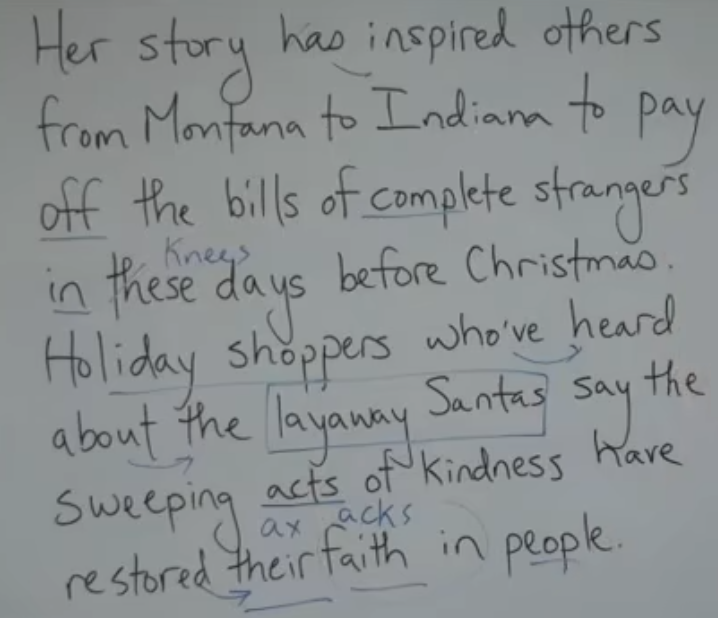 Her story has inspired others
from Montana to Indiana to pay
off the bills of complete strangers
Knees
in these days before Christmas.
Holiday shoppers who've heard
about the layaway Santas say the
sweeping acts of kindness have
ax acks
restored their faith in people.